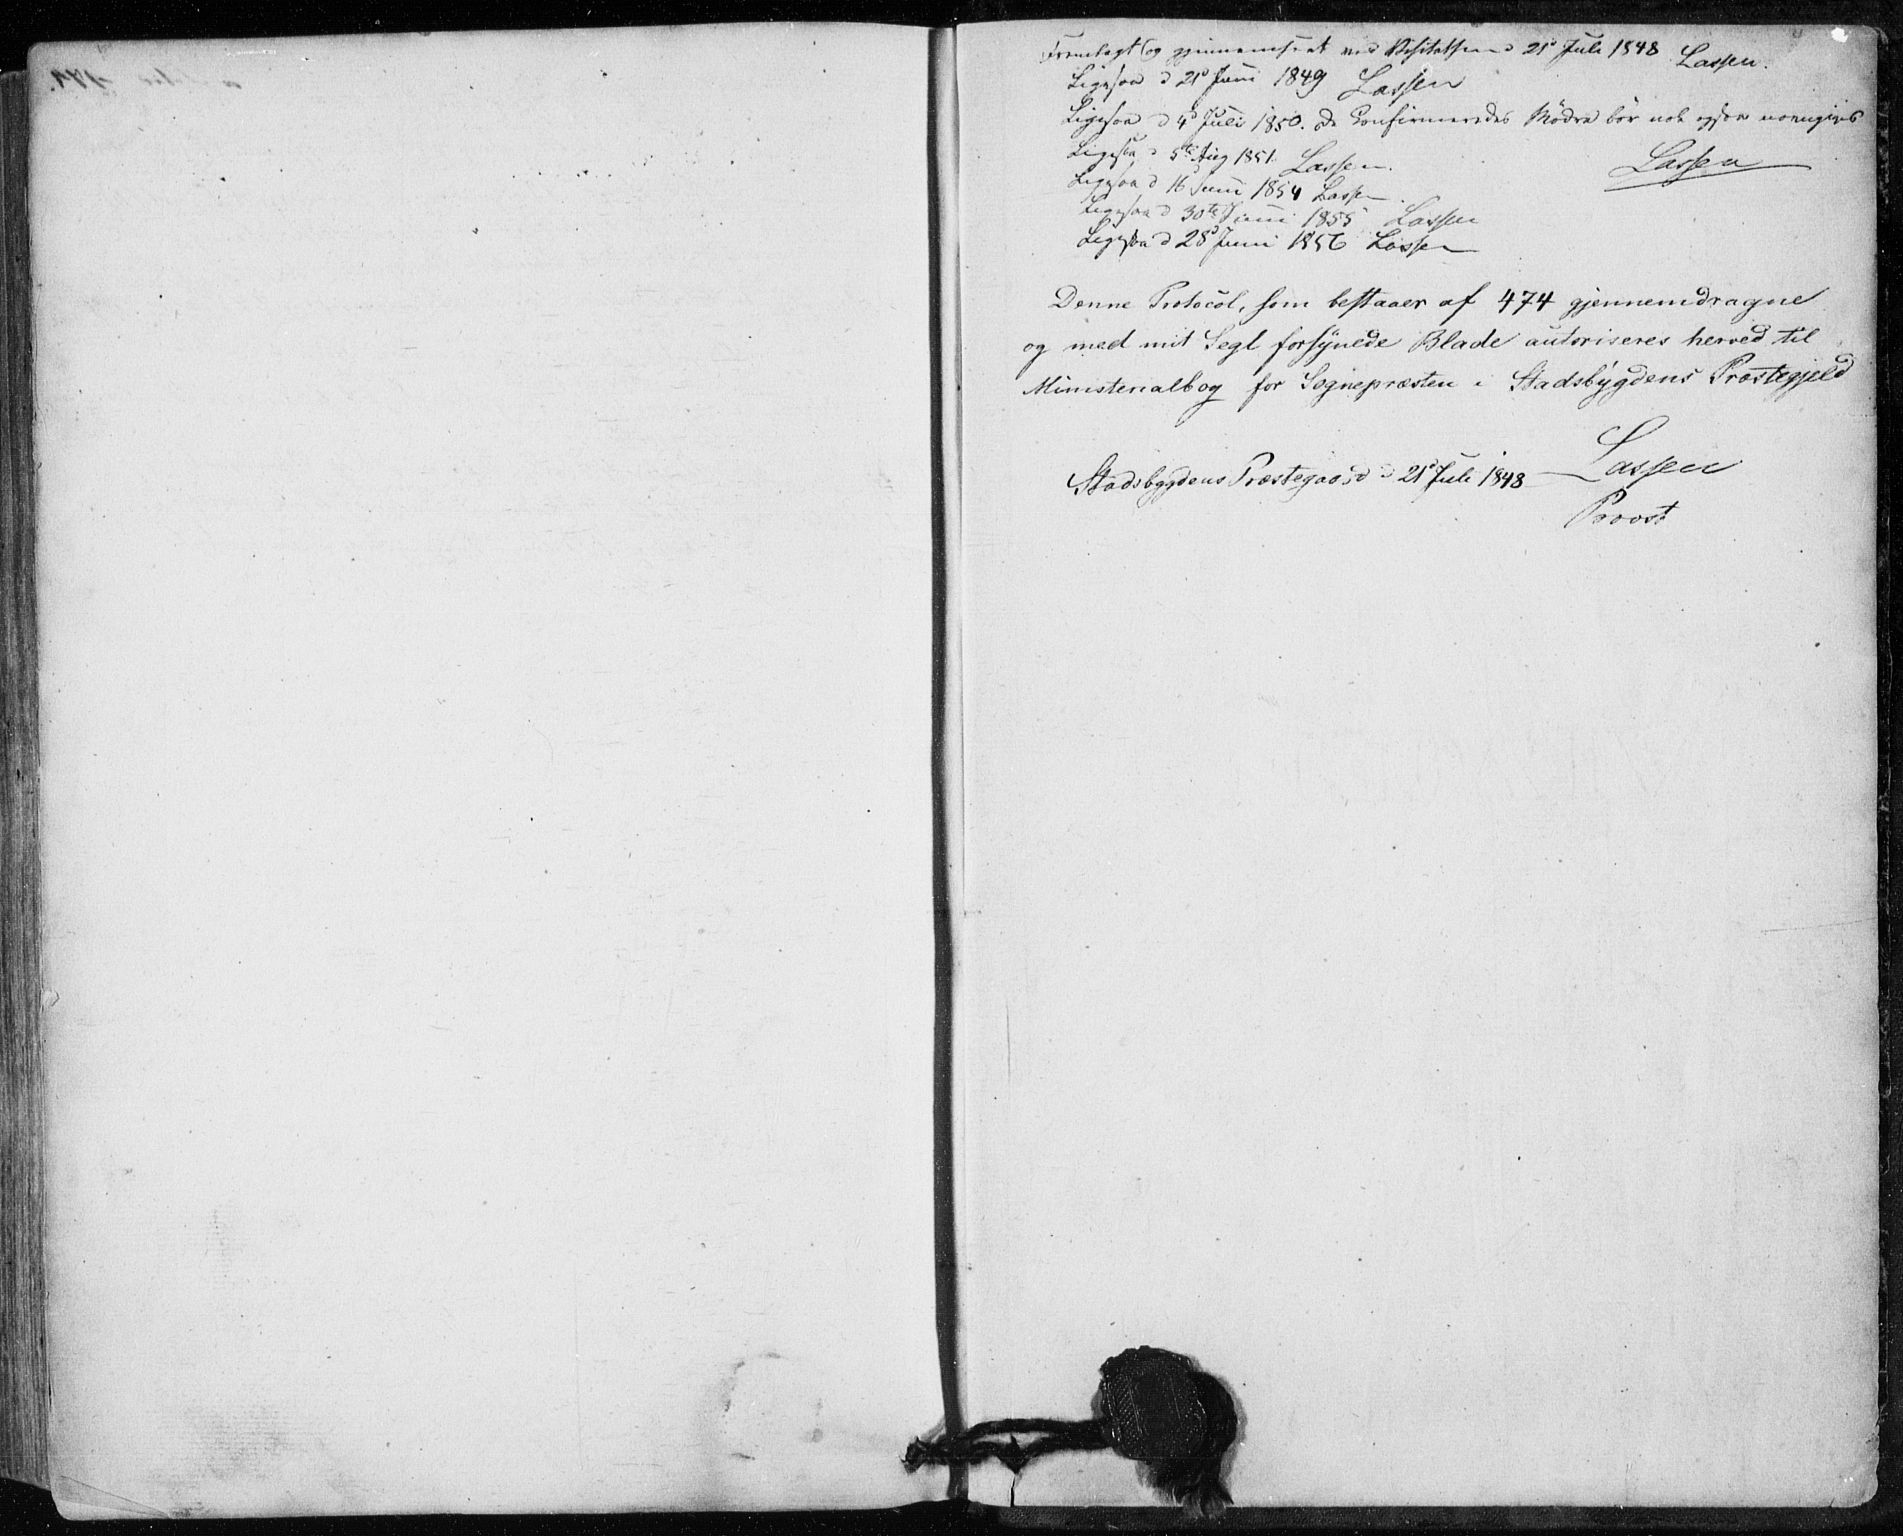 Fremlagt og gjennemseet ved Visitatsen d 21d Juli 1848 Lassen.
Ligesaa d 21d Juni 1849 Lassen
Ligesaa d 4d Juli 1850. De Confirmeredes Mødre bør nok ogsaa
Ligesaa d 5te Aug 1851. Lassen.
Lassen
Ligesaa d 16 Juni 1854 Lassen.
Ligesaa d 30te Juni 1855 Lassen
Ligesaa d 28d Juni 1856 Lassen
Denne Protocol, som bestaaer af 474 gjennemdragne
og med mit Segl forsÿnede Blade autoriseres herved til
Ministerialbog for Sognepræsten i Stadsbÿgdens Præstegjeld
Stadsbygdens Præstegaard d 21d Juli 1848
Lassen
Provst